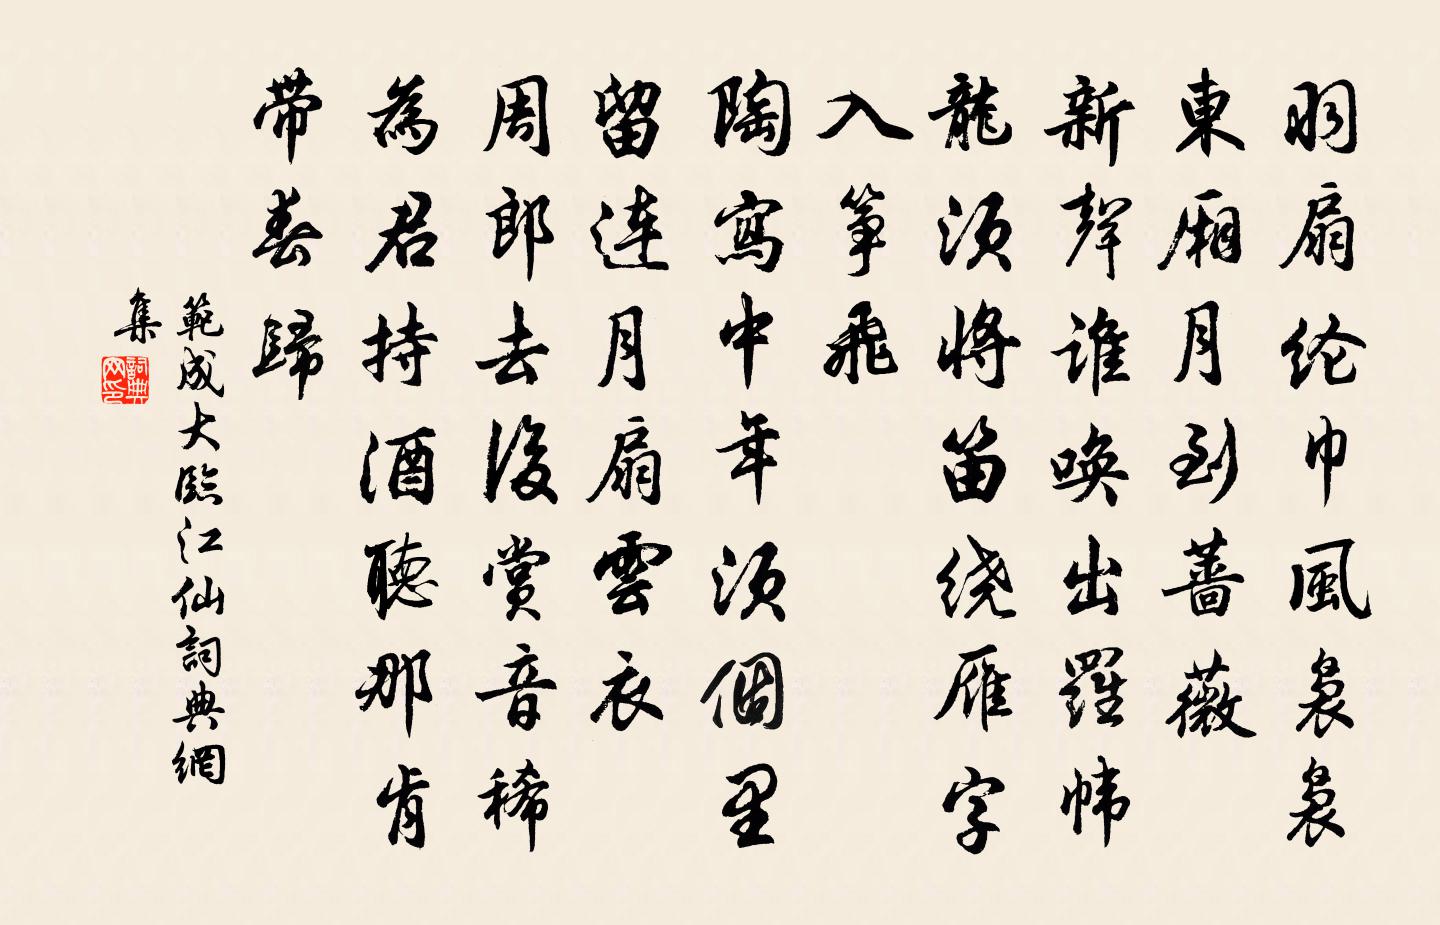 羽扇纶巾風袅袅
東厢月到蔷薇
新聲谁唤出羅帏
龍须將笛绕雁字
入筝飛
陶寫中年须個里
留连月扇雲衣
周郎去後赏音稀
為君持酒聽那肯
带春歸
範成大臨江仙詞典網
集
詞典
网印